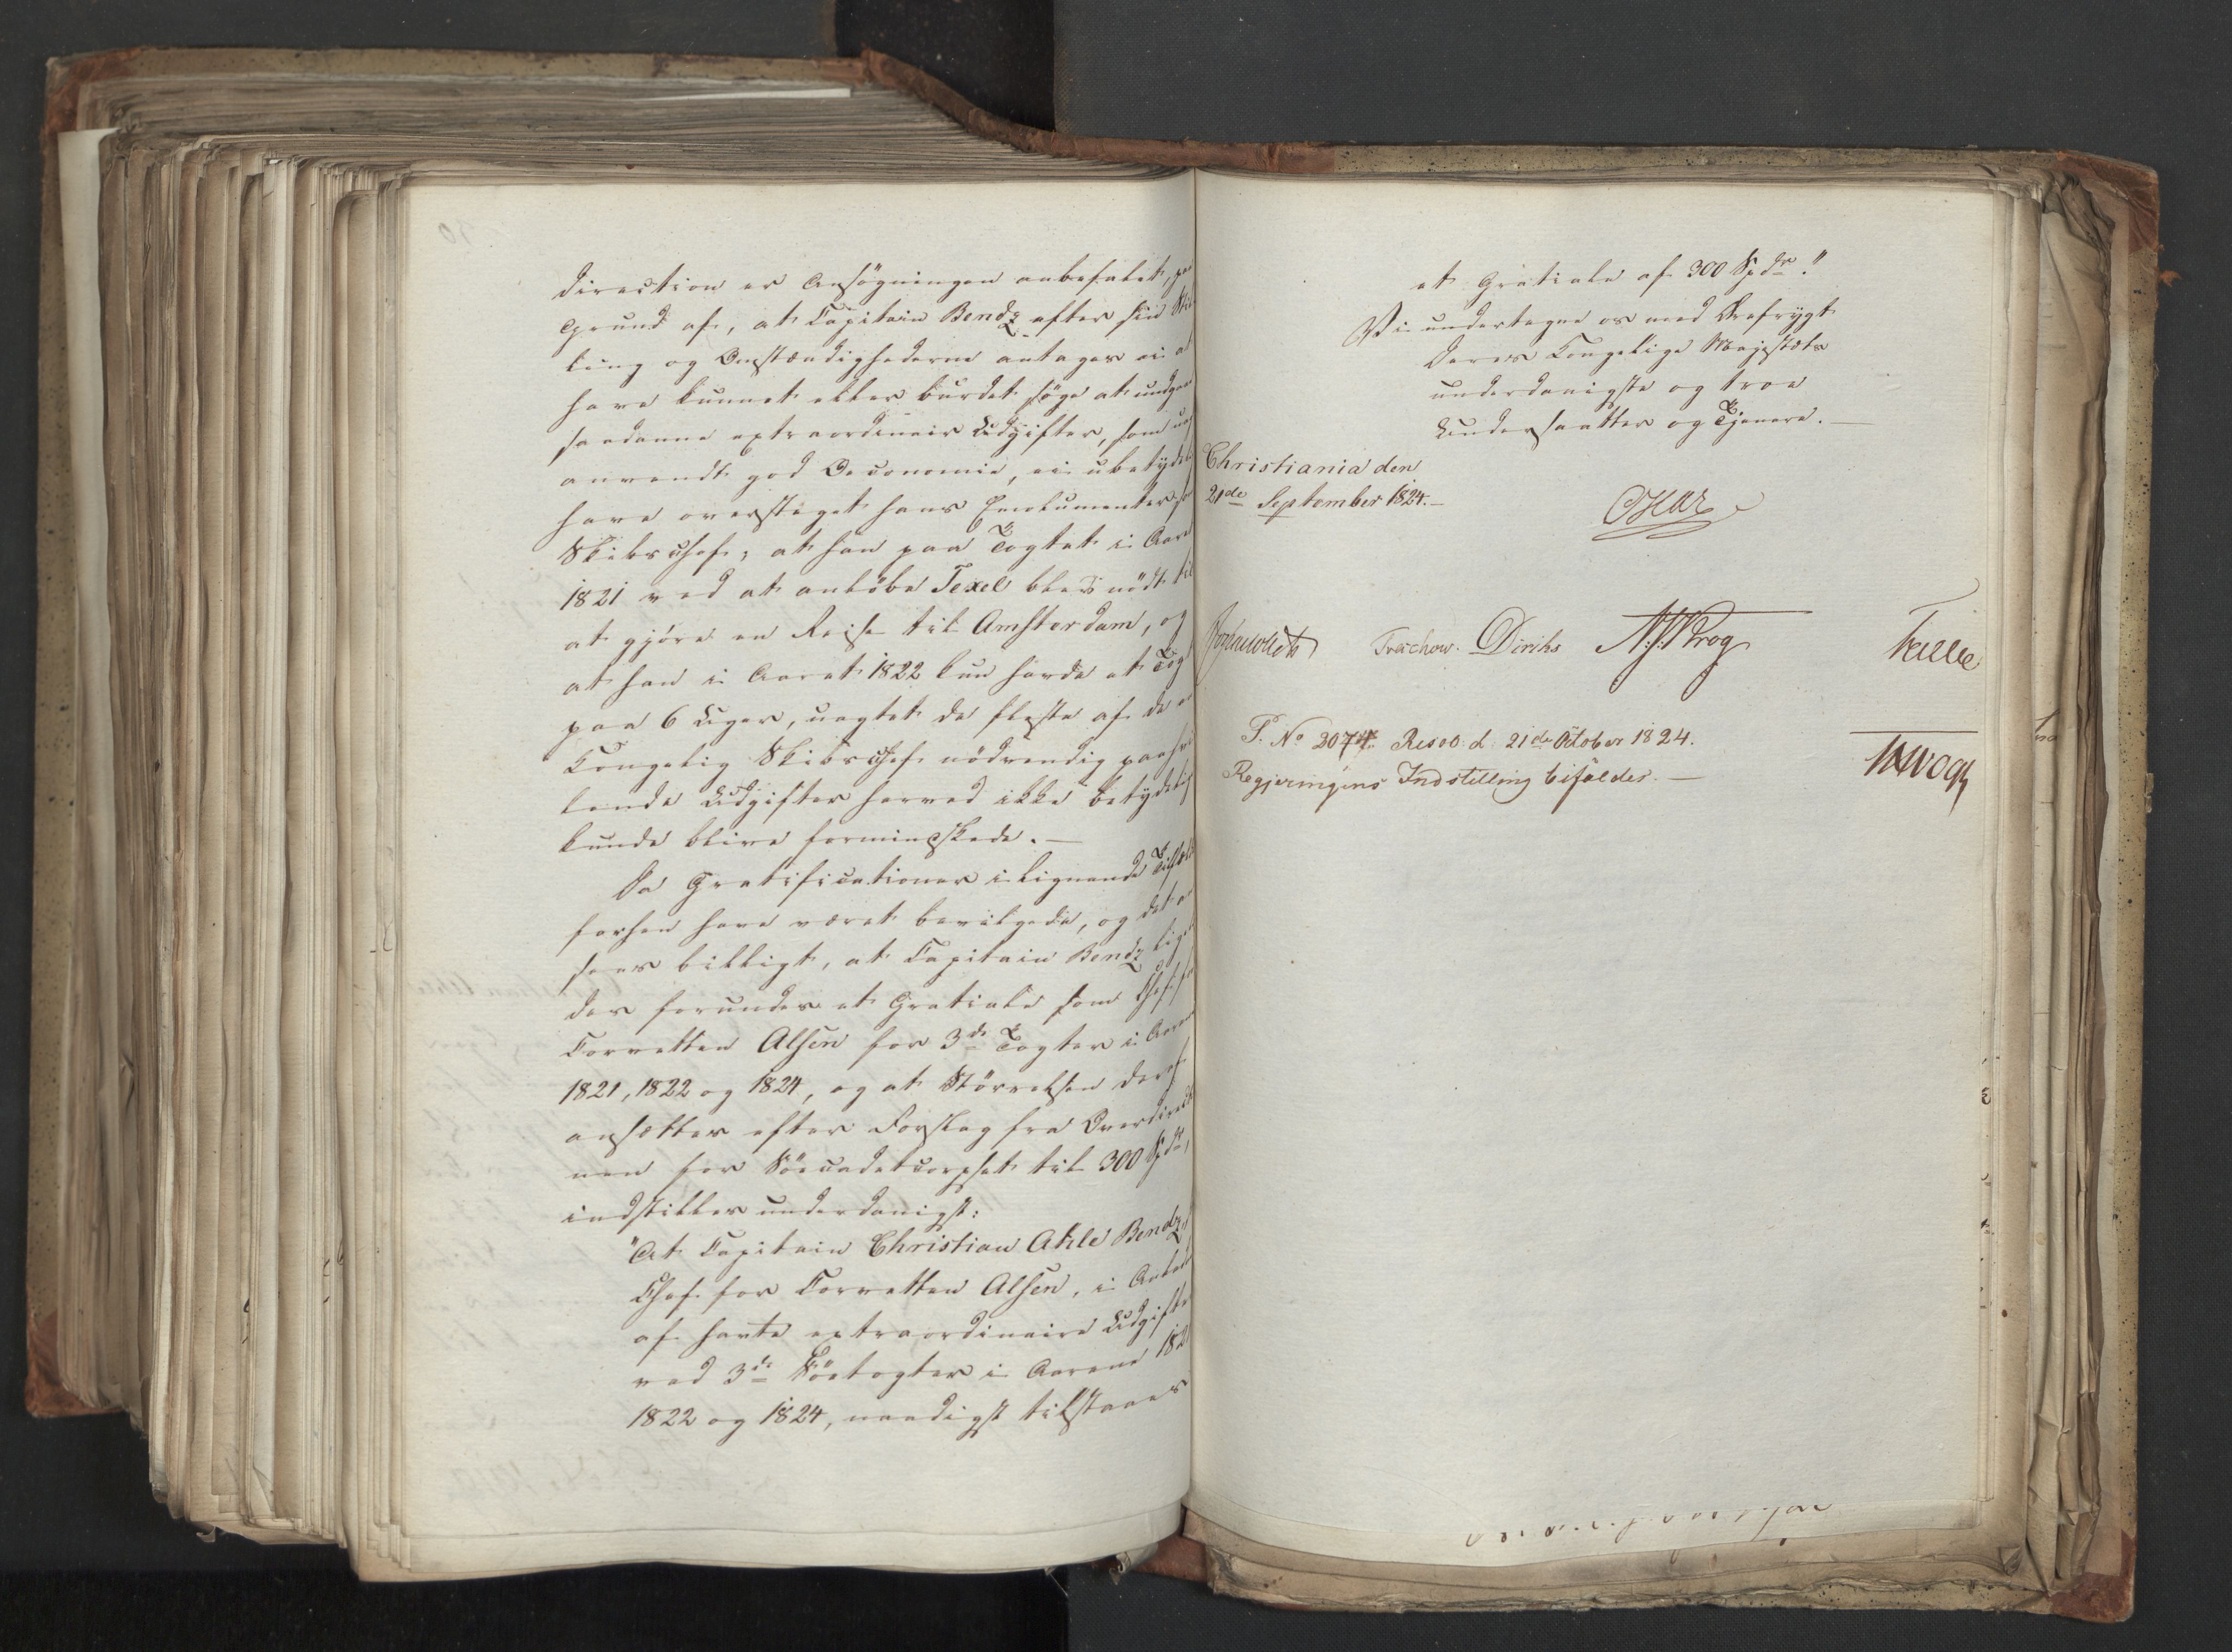 direction er Ansögningen anbefalet, paa
Grund af, at Capitain Bendz efter sin Stil
ling og Omstændighederne antages ei at
have kunnet eller burdet söge at undgaae
saadanne extraordinair Udgifter, som uagt
anvendt god Oeconomie, ei ubetydel
have oversteget hans Emolumenter som
Skibschef; at han paa Togtet i Aaret
1821 ved at anlöbe Texel blev nödt til
at gjöre en Reise til Amsterdam, og
at han i Aaret 1822 kun havde et Togt
paa 6 Uger, uagtet de fleste af de en
Kongelig Skibschef nödvendig paahvi
lende Udgifter herved ikke betydelig
kunde blive formindskede. —
Da Gratificationer i lignende Tilfælde
forhen have været bevilgede, og det an
sees billigt, at Capitain Bendz lige
der forundes et Gratiale som Chef for
Corvetten Alsen for 3de Togter i Aarene
1821, 1822 og 1824, og at Störrelsen deraf
ansættes efter Forslag fra Overdirectio
nen for Söecadetcorpset til 300 Spdr,
indstilles underdanigst:
"At Capitain Christian Akile Bendz,
Chef for Corvetten Alsen, i Anledn
af havte extraordinaire Udgifter
ved 3de Söetogter i Aarene 1821
1822 og 1824, naadigst tilstaaes
et Gratiale af 300 Spdr."
Vi undertegne os med Ærefrygt
Deres Kongelige Majestæts
underdanigste og troe
Undersaatter og Tjenere. —
Christiania den
21de September 1824. —
Oscar
Treschow. Diriks
P. No 2074. Resol: d. 21de October 1824.
Regjeringens Indstilling bifaldes. —